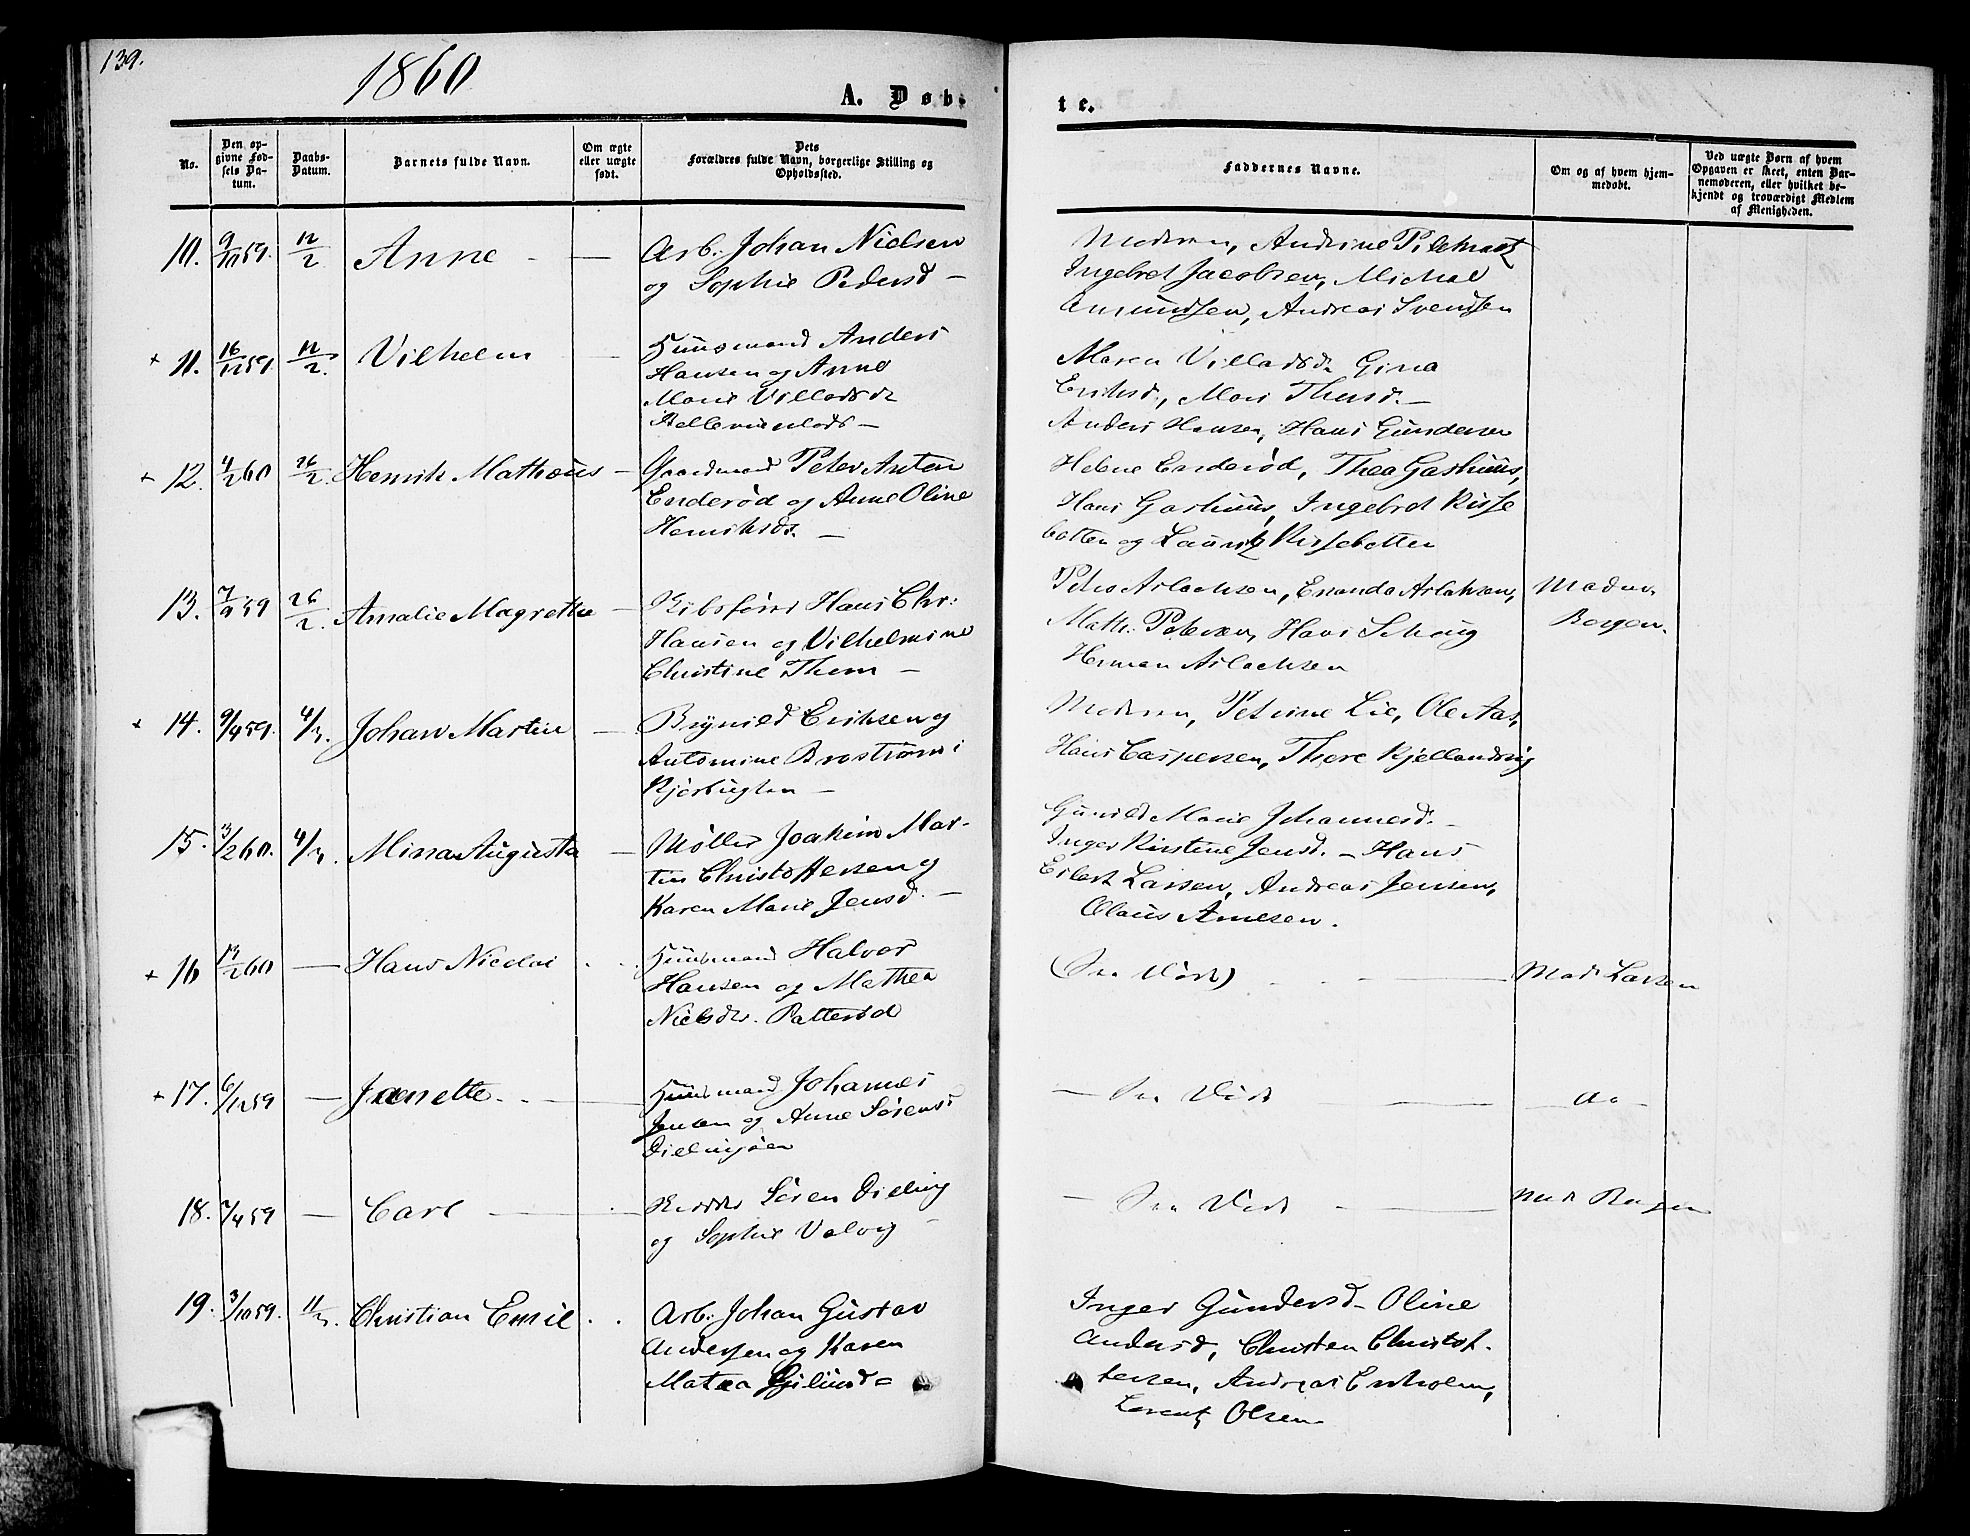 139.
1860
A. Døb-
te.
No.
Den op-
givne Fød-
sels Da-
tum.
Daabs-
Datum.
Barnets fulde Navn.
Om ægte
eller uægte
født.
Dets
Forældres fulde Navn, borgerlige Stilling og
Opholdssted.
Faddernes Navne.
Om og af hvem hjem-
medøbt.
Ved uægte Børn af hvem
Opgaven er skeet, enten Bar-
nemoderen, eller hvilket be-
kjendt og troværdigt Medlem
af Menigheden.
10. 9/10 59. 12/2 Anne -
Arb: Johan Nielsen
og Sophie Pedersd -
Moderen, Andrine
Ingebret Jacobsen, Michal
Amundsen, Andreas Svendsen
+ 11. 16/12 59. 12/2. Vilhelm
Huusmand Anders
Hansen og Anne
Marie Villadsdr
Maren Villadsdr Gina
Eriksd., Mari Thersd. -
Anders Hansen, Hans Gundersen
+ 12. 4/2 60 26/2. Henrik Mathæus -
Gaardmand Peter Anton
Enderød og Anne Oline
Henriksdr. -
Helene Enderød, Thea Gashuus,
Hans Gashuus, Ingebret Risse
botten og Lauritz Rissebotten
13. 7/9 59 26/2. Amalie Magrethe -
Skibsfører Hans Chr:
Hansen og Vilhelmine
Christine Them -
Peder Aslachsen, Enanda Aslaksen,
Math: Petersen, Hans Schaug
Herman Aslachsen
Madm.
Borgen.
+ 14. 9/4 59. 4/3. Johan Martin -
Brynild Eriksen og
Antomine Brostrøm i
Kjørbugten -
Moderen, Petrine Lie, Ole Aas,
Hans Caspersen, Thore Kjellandsvig
15. 3/2 60. 4/3. Mina Augusta -
Møller Joakim Mar-
tin Christoffersen og
Karen Marie Jensd. -
Gunild Marie Johannesd. -
Inger Kirstine Jensd. - Hans
Eilert Larsen, Andreas Jensen,
Olaus Arnesen.
+ 16 13/2 60 - Hans Nicolai
Huusmand Halvor
Hansen og Mathea
Nielsdr. Patterød
(Saa Død)
Mad. Larsen
+ 17. 6/12 59 - Janette -
Huusmand Johannes
Jensen og Anne Sørensd
- Saa Død
do
18. 7/4 59 - Carl -
Søren Dieling
og Sophie Valvig -
- Saa Død -
Mad Borgen
19. 3/10 59. 11/3. Christian Emil
Arb: Johan Gustav
Andersen og Karen
Matea
Inger Gundersd - Oline
Andersd, Christen Christof-
fersen, Andreas Enholm,
Lorentz Olsen